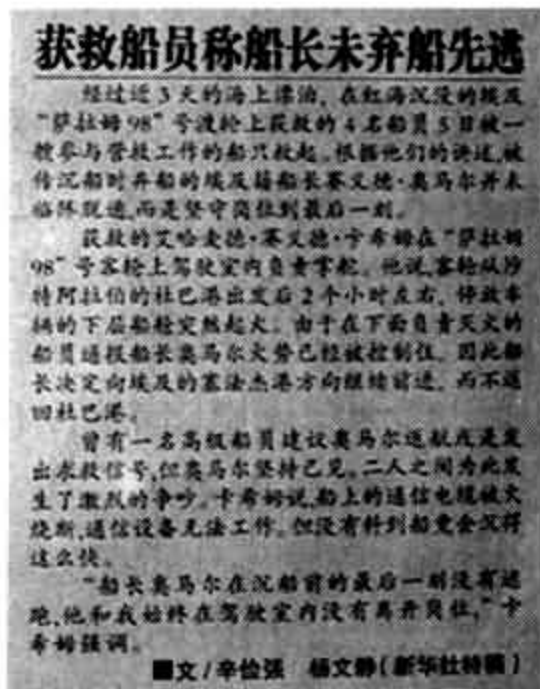 获救船员称船长未弃船先逃
经过近3天的海上漂泊，在红海沉没的埃及
“萨拉姆98”号渡轮上获救的4名船员5日被一
艘参与营救工作的船只救起。根据他们的讲述，被
传沉船时弃船的埃及籍船长赛义德·奥马尔并未
临阵脱逃，而是坚守岗位到最后一刻。
获救的艾哈麦德·赛义德·卡希姆在“萨拉姆
98”号客轮上驾驶室内负责掌舵。他说，客轮从沙
特阿拉伯的杜巴港出发后2个小时左右，停放车
辆的下层船舱突然起火。由于在下面负责灭火的
船员通报船长奥马尔火势已经被控制住，因此船
长决定向埃及的塞法杰港方向继续前进，而不返
回杜巴港。
曾有一名高级船员建议奥马尔返航或是发
出求救信号，但奥马尔坚持己见。二人之间为此发
生了激烈的争吵。卡希姆说，船上的通信电缆被火
烧断，通信设备无法工作。但没有料到船竟会沉得
这么快。
“船长奥马尔在沉船前的最后一刻没有逃
跑，他和我始终在驾驶室内没有离开岗位，”卡
希姆强调。
■文/辛俭强 杨文静（新华社特稿）